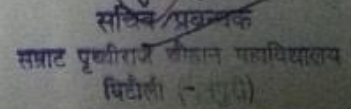 सचिव/प्रबन्धक
सम्राट पृथ्वीराज चौहान महाविद्यालय
चिटौली